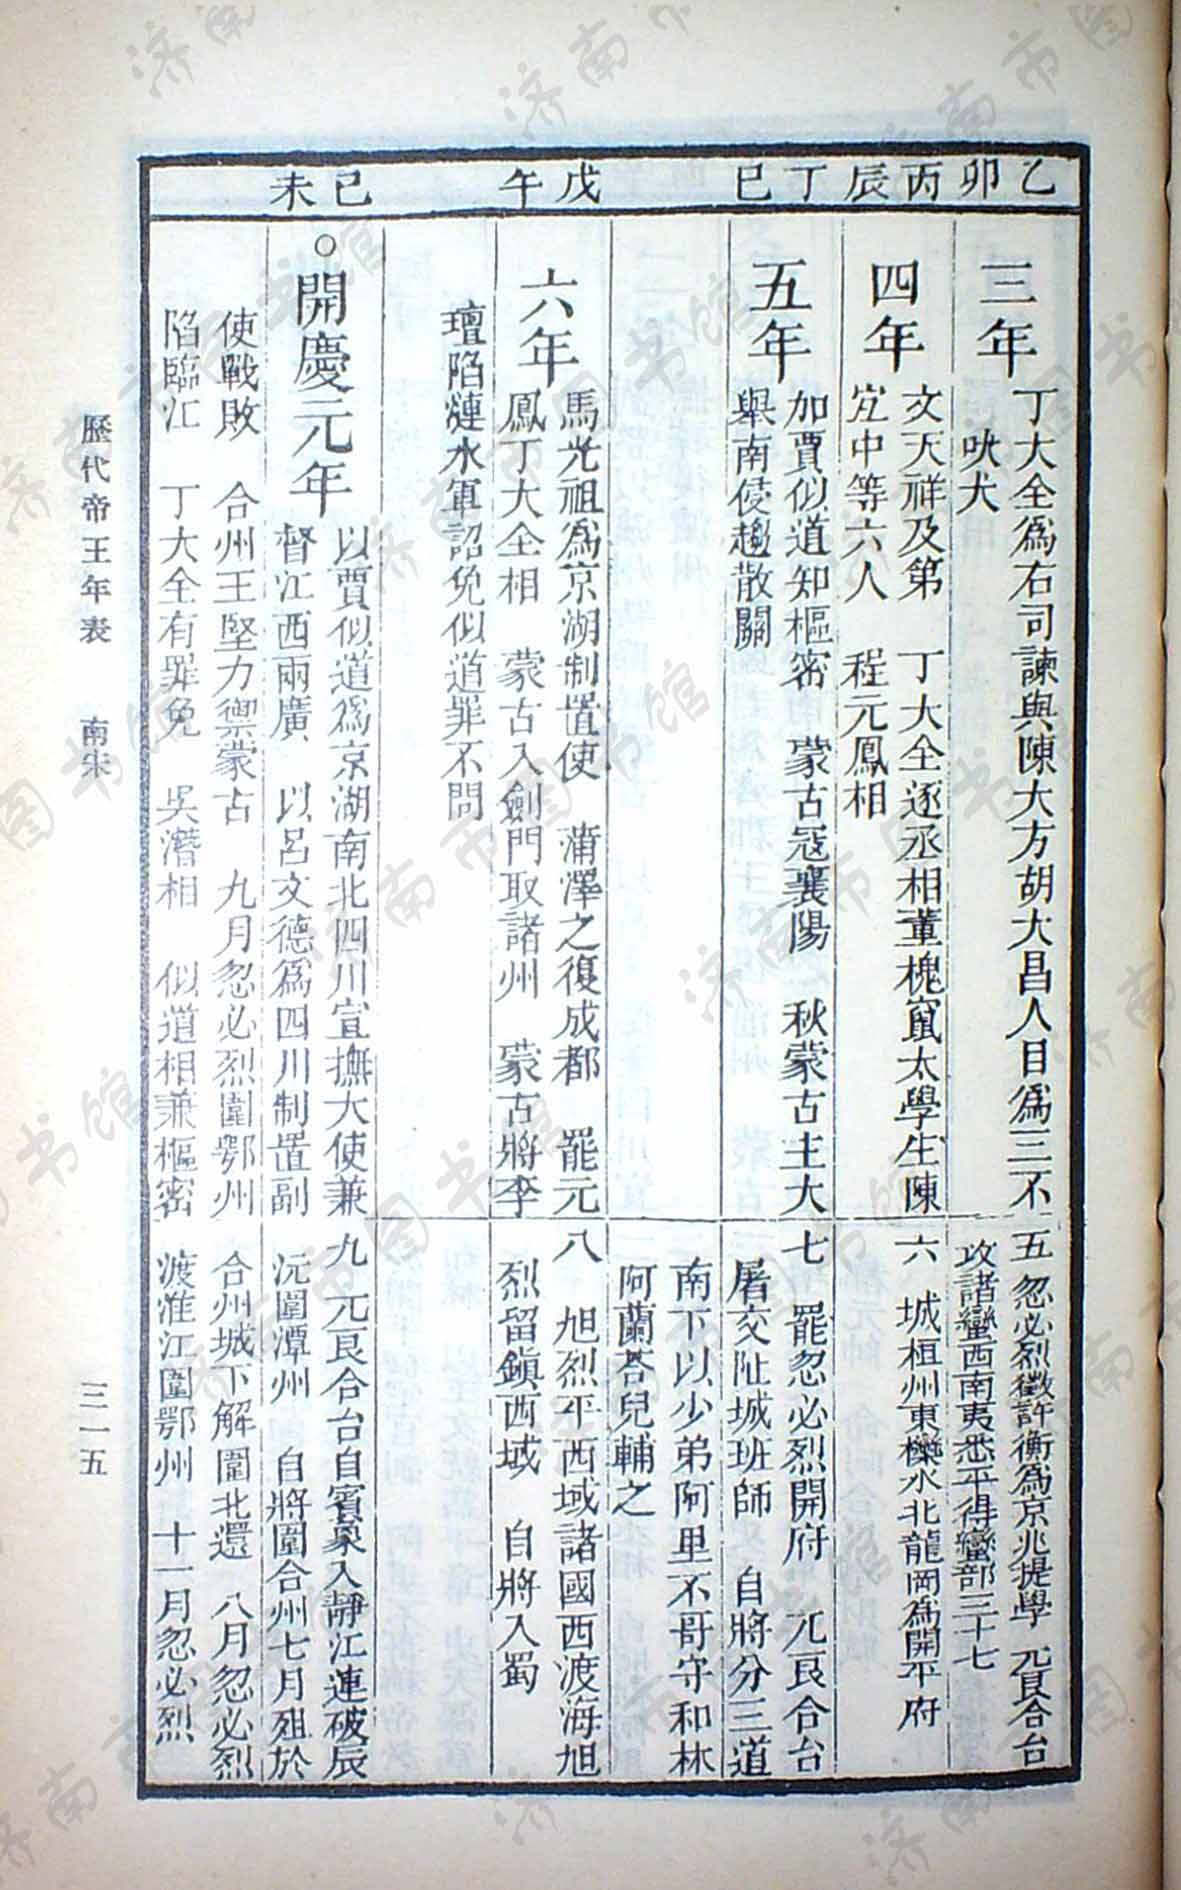 乙卯 丙辰 丁巳 戊午 己未
三年
丁大全爲右司諫與陳大方胡大昌人目爲三不
吠犬
五 忽必烈徵許衡爲京兆提學 兀良合台
攻諸蠻西南夷悉平得蠻部三十七
四年
文天祥及第 丁大全逐丞相董槐竄太學生陳
宜中等六人 程元鳳相
六 城桓州東欒水北龍岡爲開平府
五年
加賈似道知樞密 蒙古寇襄陽 秋蒙古主大
舉南侵趨散關
七 罷忽必烈開府 兀良合台
屠交阯城班師 自將分三道
南下以少弟阿里不哥守和林
阿蘭荅兒輔之
六年
馬光祖爲京湖制置使 蒲澤之復成都 罷元
鳳丁大全相 蒙古入劍門取諸州 蒙古將李
璮陷漣水軍詔免似道罪不問
八 旭烈平西域諸國西渡海旭
烈留鎮西域 自將入蜀
○開慶元年
以賈似道爲京湖南北四川宣撫大使兼
督江西兩廣 以呂文德爲四川制置副
使戰敗 合州王堅力禦蒙古 九月忽必烈圍鄂州
陷臨江 丁大全有罪免 吳潛相 似道相兼樞密
九 兀良合台自賓象入靜江連破辰
沅圍潭州 自將圍合州七月殂於
合州城下解圍北還 八月忽必烈
渡淮江圍鄂州 十一月忽必烈
歷代帝王年表 南宋
三一五
济南市图书馆